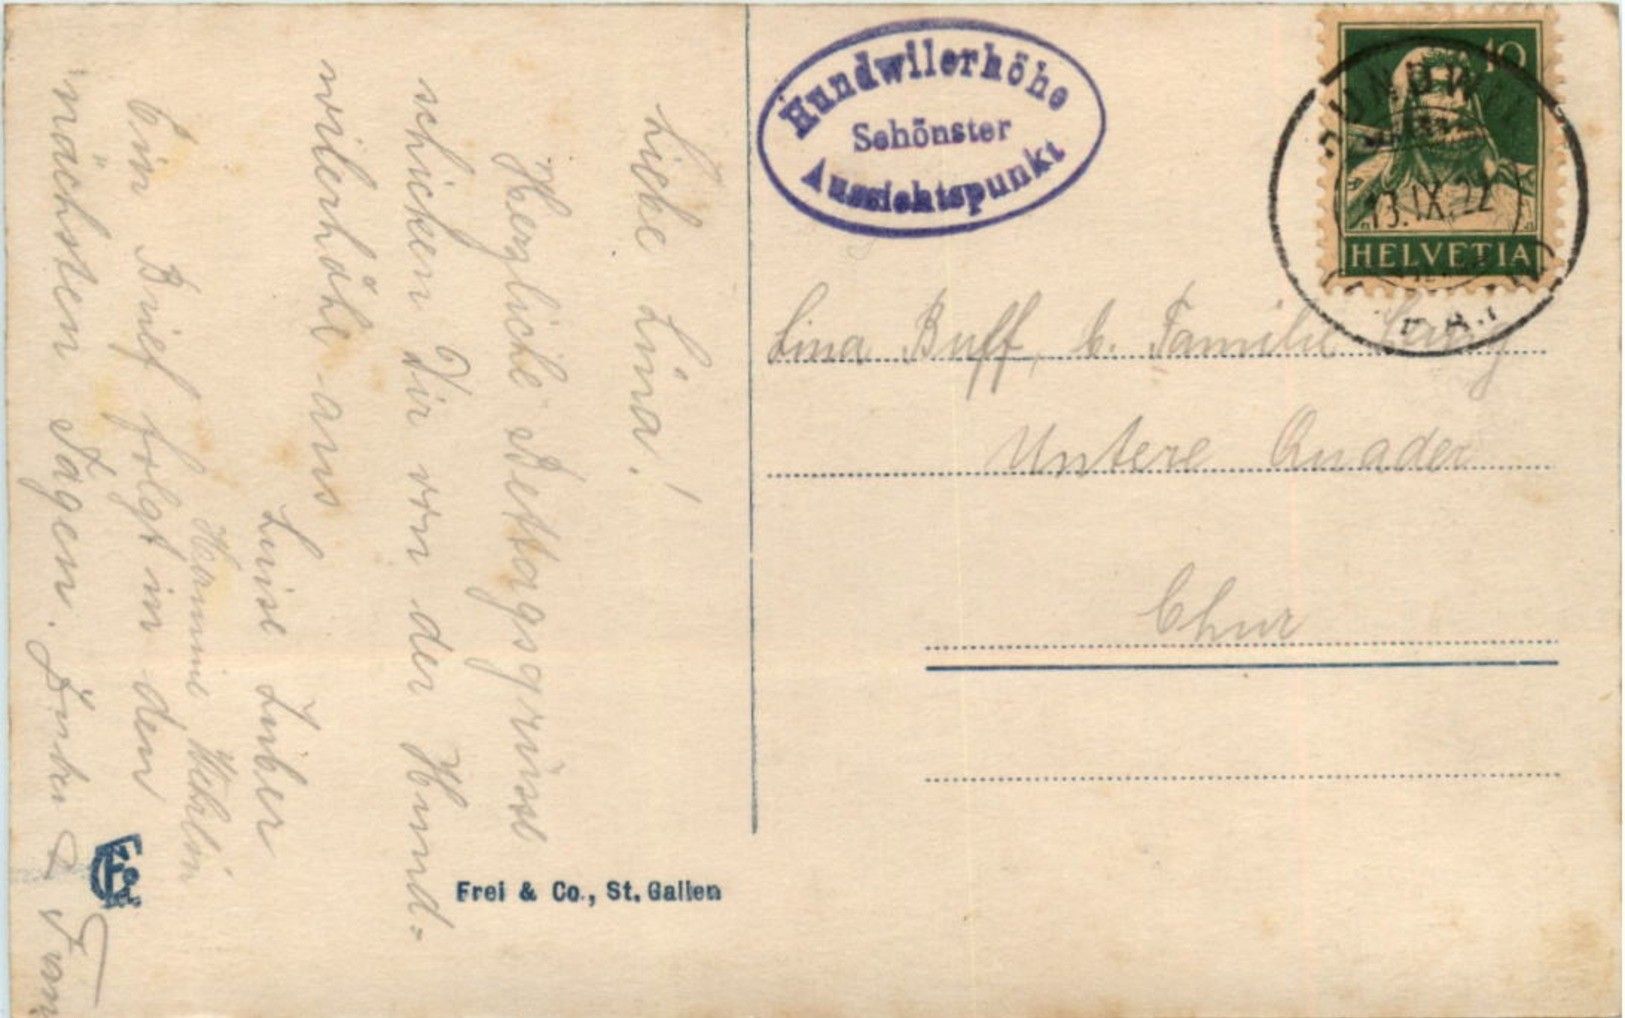 Liebe Lina!
Herzliche Bettagsgrüsse
schicken Dir von der Hund=
wilerhöhe aus
Luise Zuber
Hannie Wehrlin
Ein Brief folgt in den
nächsten Tagen.
Frei & Co., St. Gallen
Hundwilerhöhe
Schönster
Aussichtspunkt
10
HELVETIA
HUNDWIL
13.IX.22
Lina Buff, b. Familie
Untere Quader
Chur